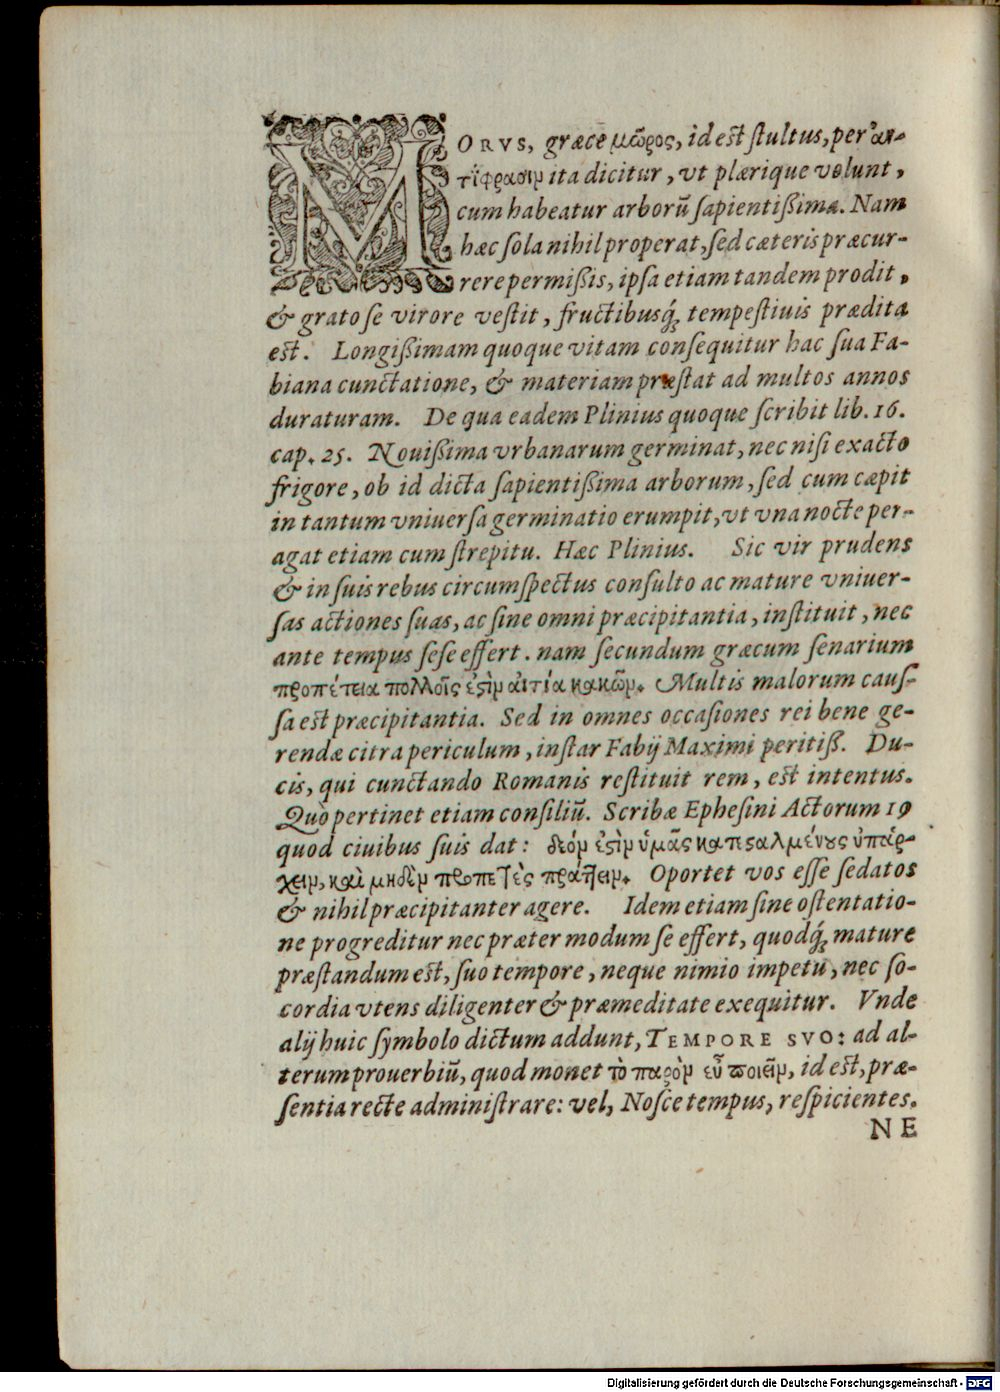 MORVS, græce μῶρος, id est stultus, per ἀν-
τίφρασιν ita dicitur, vt plærique volunt,
cum habeatur arborū sapientißima. Nam
hæc sola nihil properat, sed cæteris præcur-
rere permißis, ipsa etiam tandem prodit,
& grato se virore vestit, fructibusq́; tempestiuis prædita
est. Longißimam quoque vitam consequitur hac sua Fa-
biana cunctatione, & materiam præstat ad multos annos
duraturam. De qua eadem Plinius quoque scribit lib. 16.
cap. 25. Nouißima vrbanarum germinat, nec nisi exacto
frigore, ob id dicta sapientißima arborum, sed cum cæpit
in tantum vniuersa germinatio erumpit, vt vna nocte per-
agat etiam cum strepitu. Hæc Plinius. Sic vir prudens
& in suis rebus circumspectus consulto ac mature vniuer-
sas actiones suas, ac sine omni præcipitantia, instituit, nec
ante tempus sese effert. nam secundum græcum senarium
προπέτεια πολλοῖς ἐϛὶν αἰτία κακῶν. Multis malorum caus-
sa est præcipitantia. Sed in omnes occasiones rei bene ge-
rendæ citra periculum, instar Fabij Maximi peritiß. Du-
cis, qui cunctando Romanis restituit rem, est intentus.
Quò pertinet etiam consiliū. Scribæ Ephesini Actorum 19
quod ciuibus suis dat: δεόν ἐϛὶν ὑμᾶς κατεϛαλμένȣς ὑπάρ-
χειν, καὶ μηδὲν προπετὲς πράττειν. Oportet vos esse sedatos
& nihil præcipitanter agere. Idem etiam sine ostentatio-
ne progreditur nec præter modum se effert, quodq́; mature
præstandum est, suo tempore, neque nimio impetu, nec so-
cordia vtens diligenter & præmeditate exequitur. Vnde
alij huic symbolo dictum addunt, TEMPORE SVO: ad al-
terum prouerbiū, quod monet τὸ παρὸν εὖ ποιεῖν, id est, præ-
sentia recte administrare: vel, Nosce tempus, respicientes.
NE
Digitalisierung gefördert durch die Deutsche Forschungsgemeinschaft - DFG